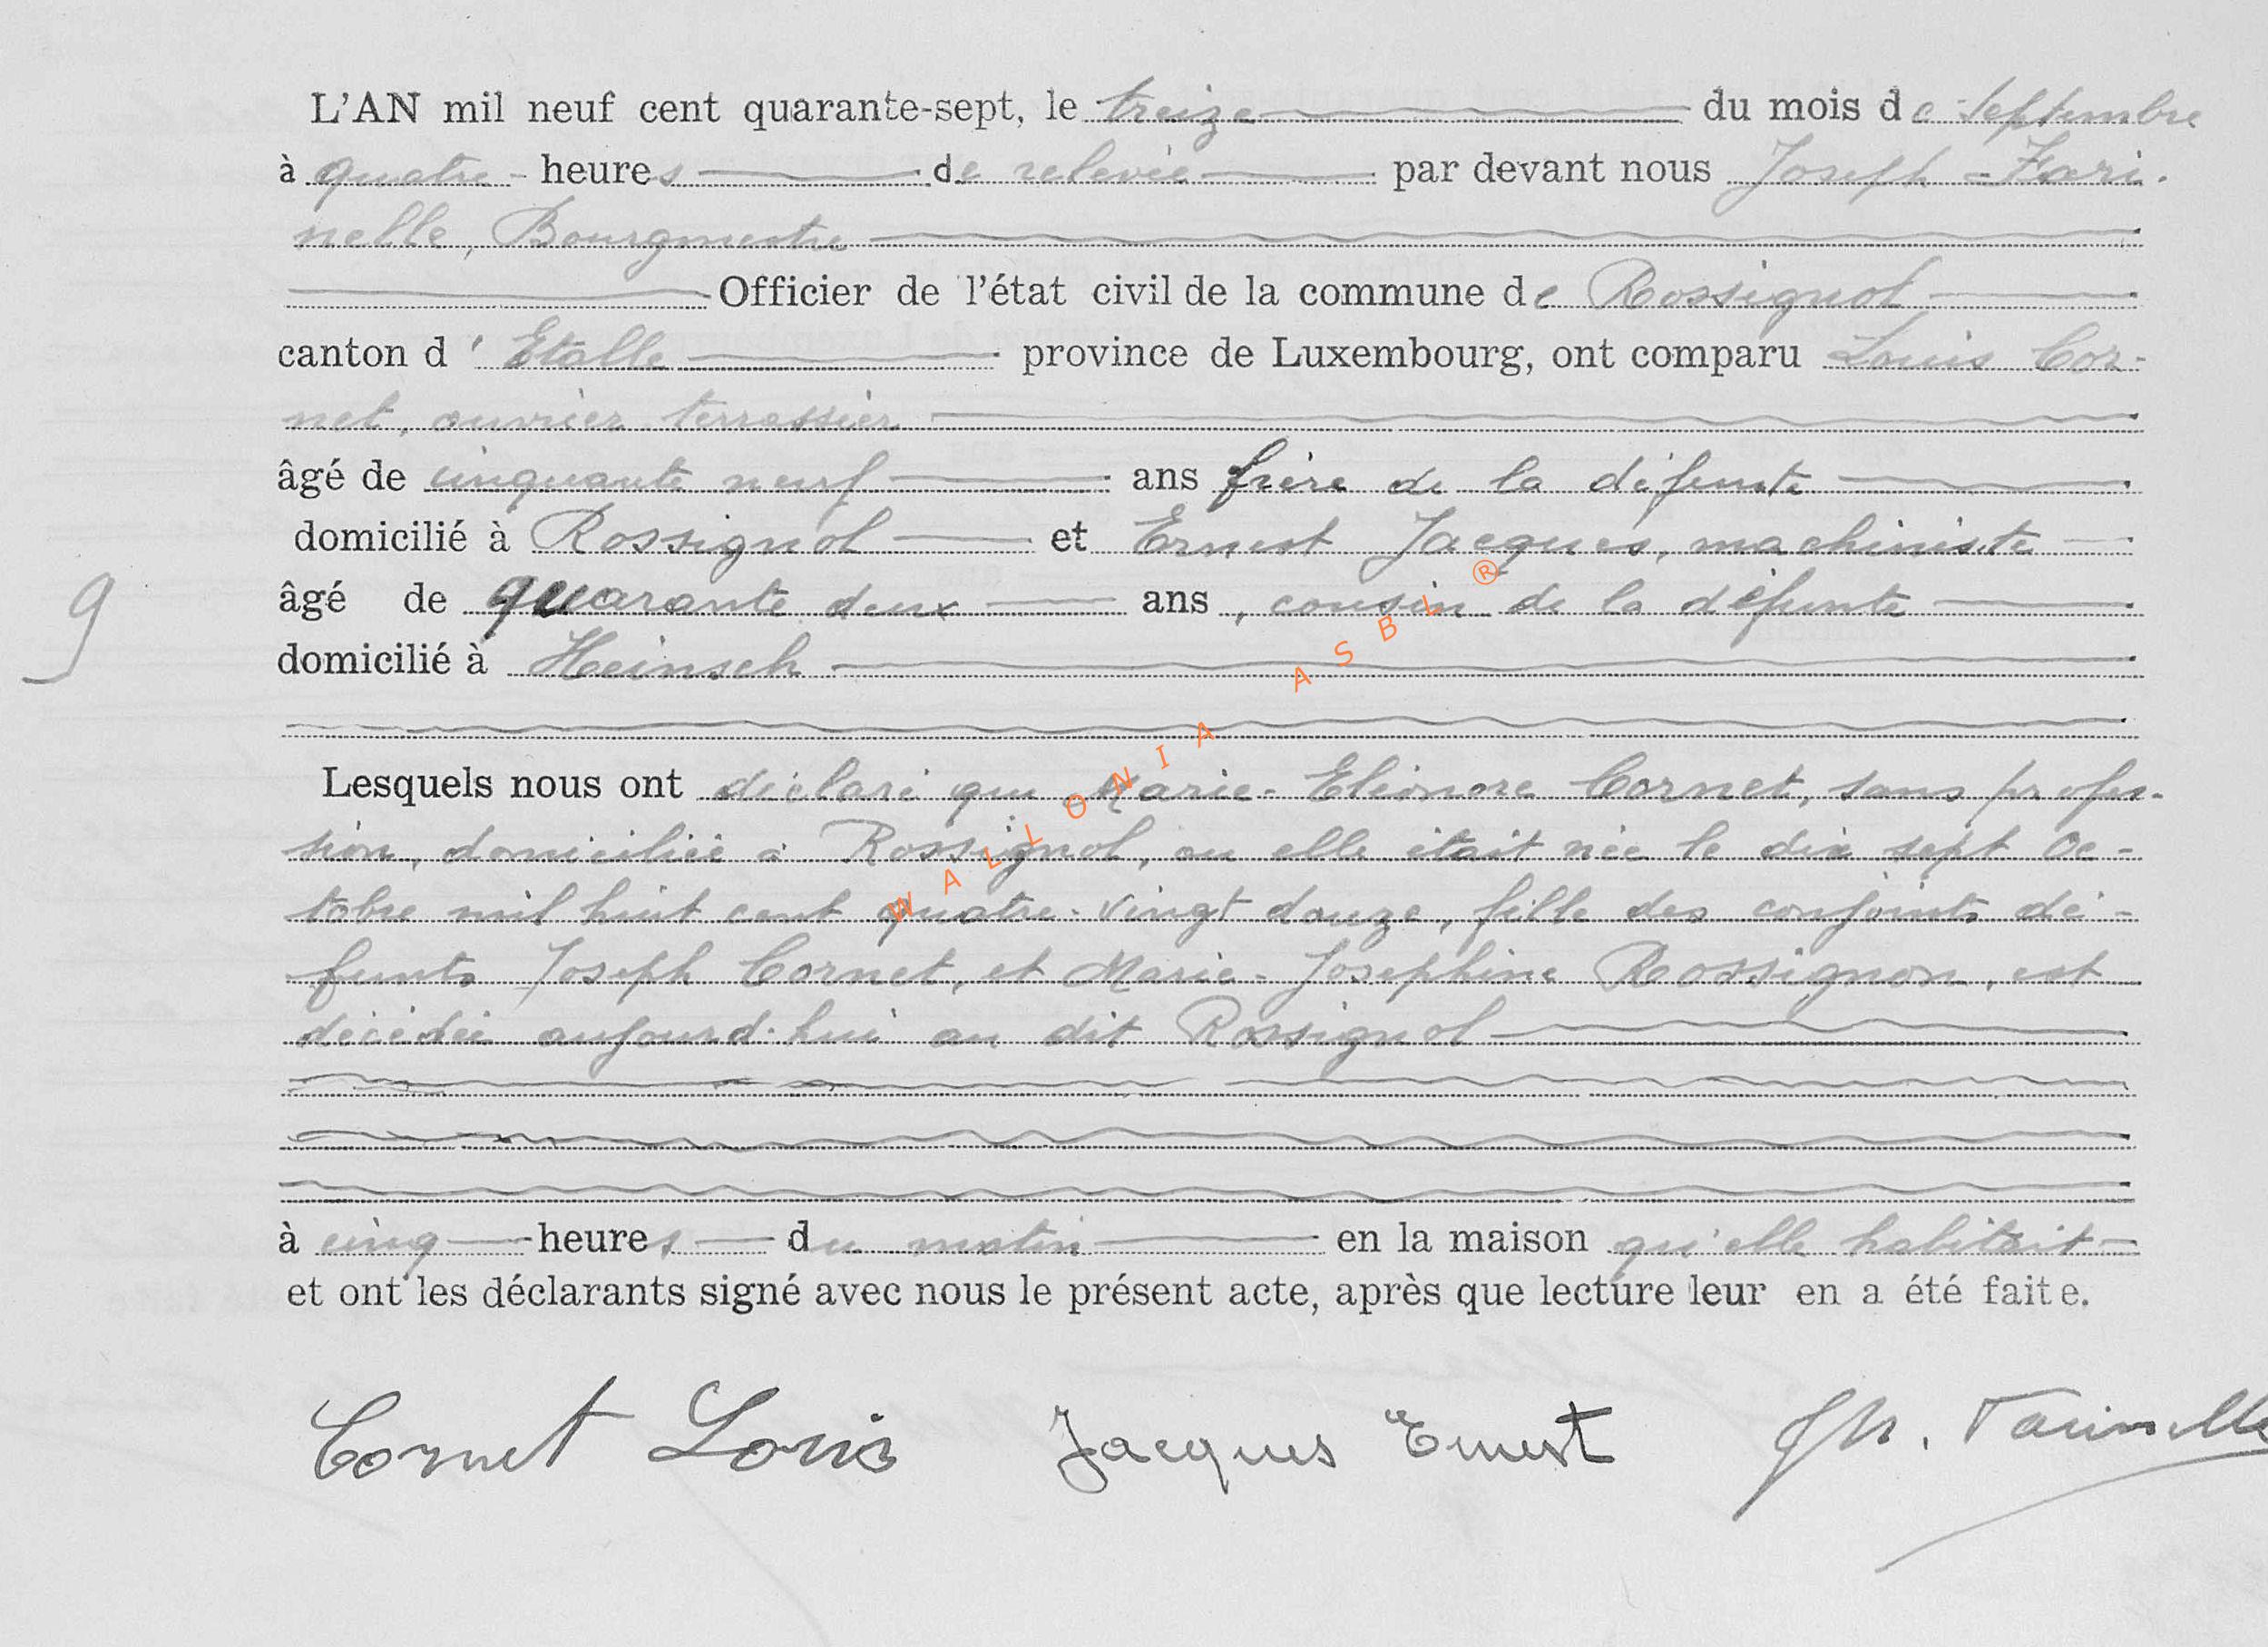 L'AN mil neuf cent quarante-sept, le treize du mois de Septembre
à quatre - heures de relevée par devant nous Joseph Fari-
nelle, Bourgmestre
Officier de l'état civil de la commune de Rossignol
canton d'Etalle province de Luxembourg, ont comparu Louis Cor-
net, ouvrier terrassier
âgé de cinquante neuf ans frère de la défunte
domicilié à Rossignol et Ernest Jacques, machiniste
9
âgé de quarante deux ans, cousin de la défunte
domicilié à Heinsch
Lesquels nous ont déclaré que Marie-Eléonore Cornet, sans profes-
sion, domiciliée à Rossignol, ou elle était née le dix sept Oc-
tobre mil huit cent quatre-vingt douze, fille des conjoints dé-
funts Joseph Cornet, et Marie-Josephine Rossignon, est
décédée aujourd'hui au dit Rossignol
à cinq heures du matin en la maison qu'elle habitait
et ont les déclarants signé avec nous le présent acte, après que lecture leur en a été faite.
Cornet Louis Jacques Ernest Jh. Farinelle
WALLONIA ASBL ®